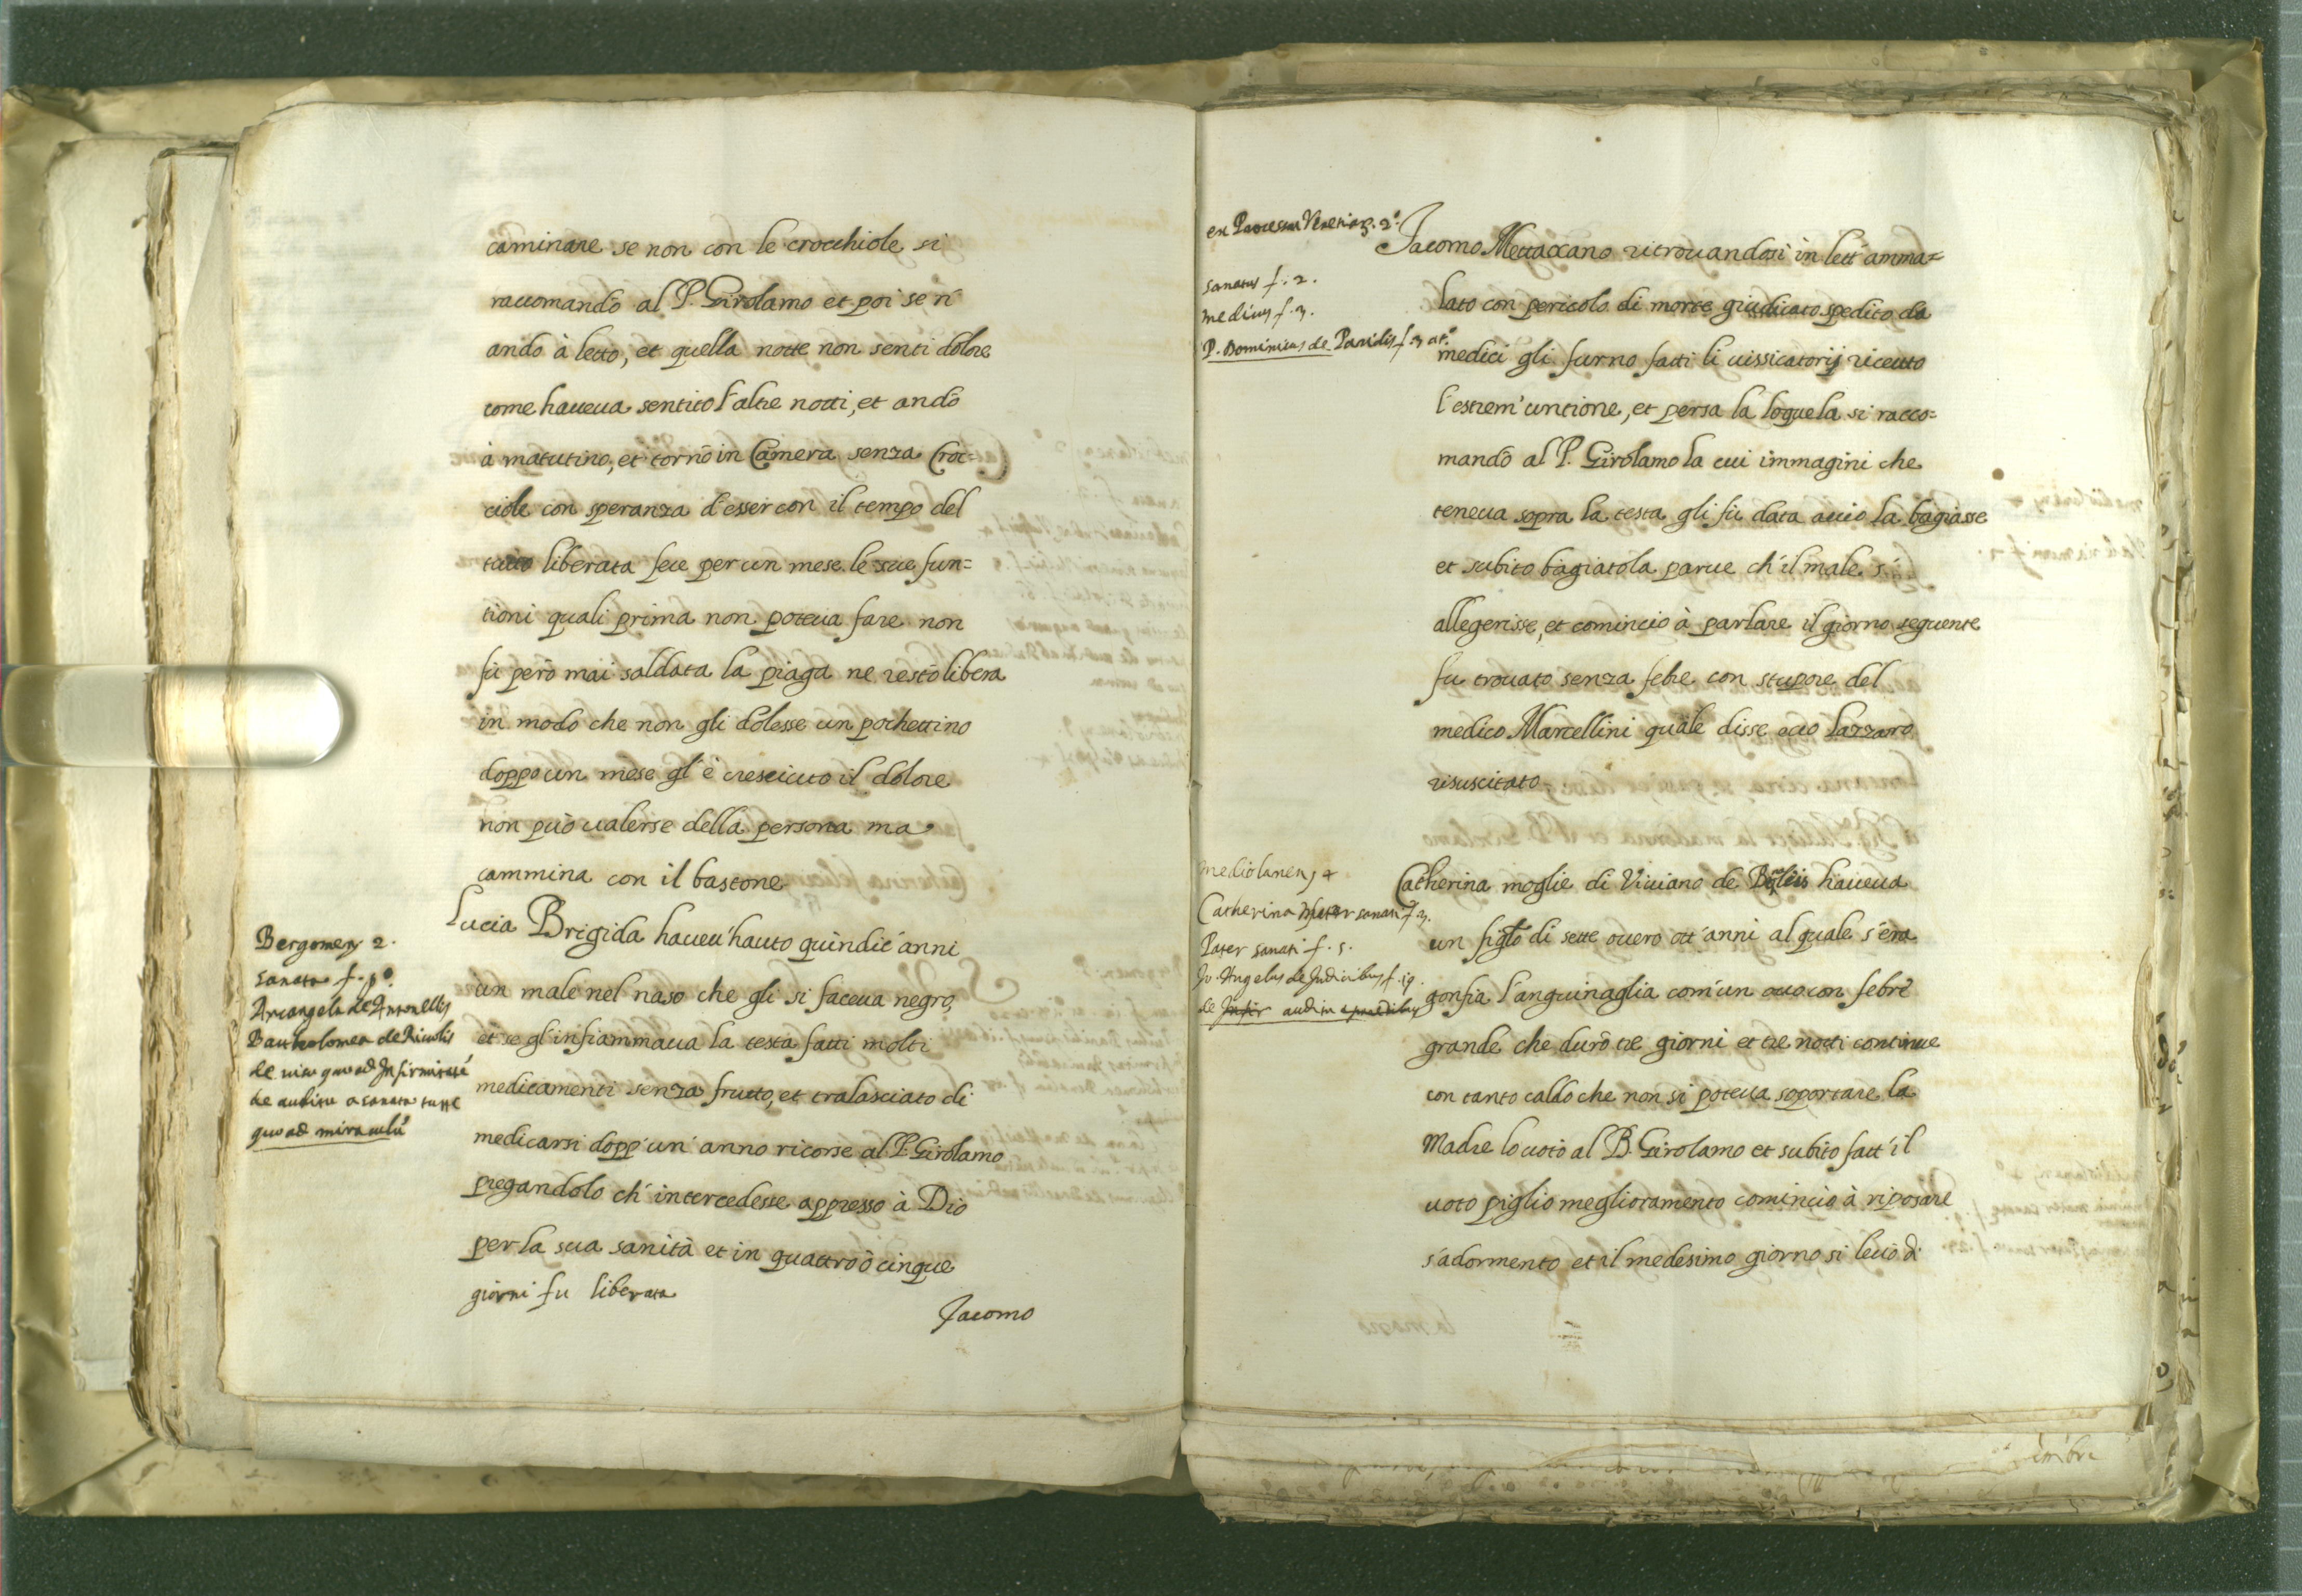 caminare se non con le crocchiole si
raccomandò al P. Girolamo et poi se n
andò à letto, et quella notte non senti dolore
come haueua sentito l'altre notti, et andò
à matutino, et tornò in Camera senza Croc=
ciole con speranza d'esser con il tempo del
tutto liberata fece per un mese le sue fun=
tioni quali prima non poteua fare non
fù però mai saldata la piaga ne restò libera
in modo che non gli dolesse un pochettino
doppo un mese gl'è cresciuto il dolore
non può ualerse della persona ma
cammina con il bastone
Bergomen 2.
sanata f.
Arcangela de Antonellis
Bartholomea de Riuolis
de uisu quo ad Infirmitaté
de auditu a sanata
quo ad miraculú
Lucia Brigida haueu' hauto quindic' anni
un male nel naso che gli si faceua negro,
et se gl'infiammaua la testa fatti molti
medicamenti senza frutto, et tralasciato di
medicarsi dopp' un' anno ricorse al P. Girolamo
pregandolo ch' intercedesse appresso à Dio
per la sua sanità et in quattro ò cinque
giorni fu liberata
Jacomo
ex Processu Venetiar. 2º.
sanatus f. 2.
medicus f. 3.
P. Dominicus de Paridis f. 3 at.º
Jacomo ritrouandosi in lett' amma=
lato con pericolo di morte giudicato spedito da
medici gli furno fatti li uissicatorij riceuto
l'estrem' untione, et persa la loquela si racco=
mandò al P. Girolamo la cui immagini che
teneua sopra la testa gli fù data acciò la bagiasse
et subito bagiatola parue ch' il male si
allegerisse, et comincio à parlare il giorno seguente
fu trouato senza febre con stupore del
medico Marcellini quale disse ecco Lazzaro
risuscitato
mediolanen 4
Catherina Mater sanati f. 3.
Pater sanati f. 5.
Jo. Angelus de Judicibus f. 19.
de auditu
Catherina moglie di Viuiano de haueua
un figlo di sette ouero ott' anni al quale s'era
gonfia l'anguinaglia com' un ouo con febre
grande che durò tre giorni et tre notti continue
con tanto caldo che non si poteua soportare la
Madre lo uotò al B. Girolamo et subito fatt' il
uoto piglio meglioramento cominciò à riposare
s'adormento et il medesimo giorno si leuò di